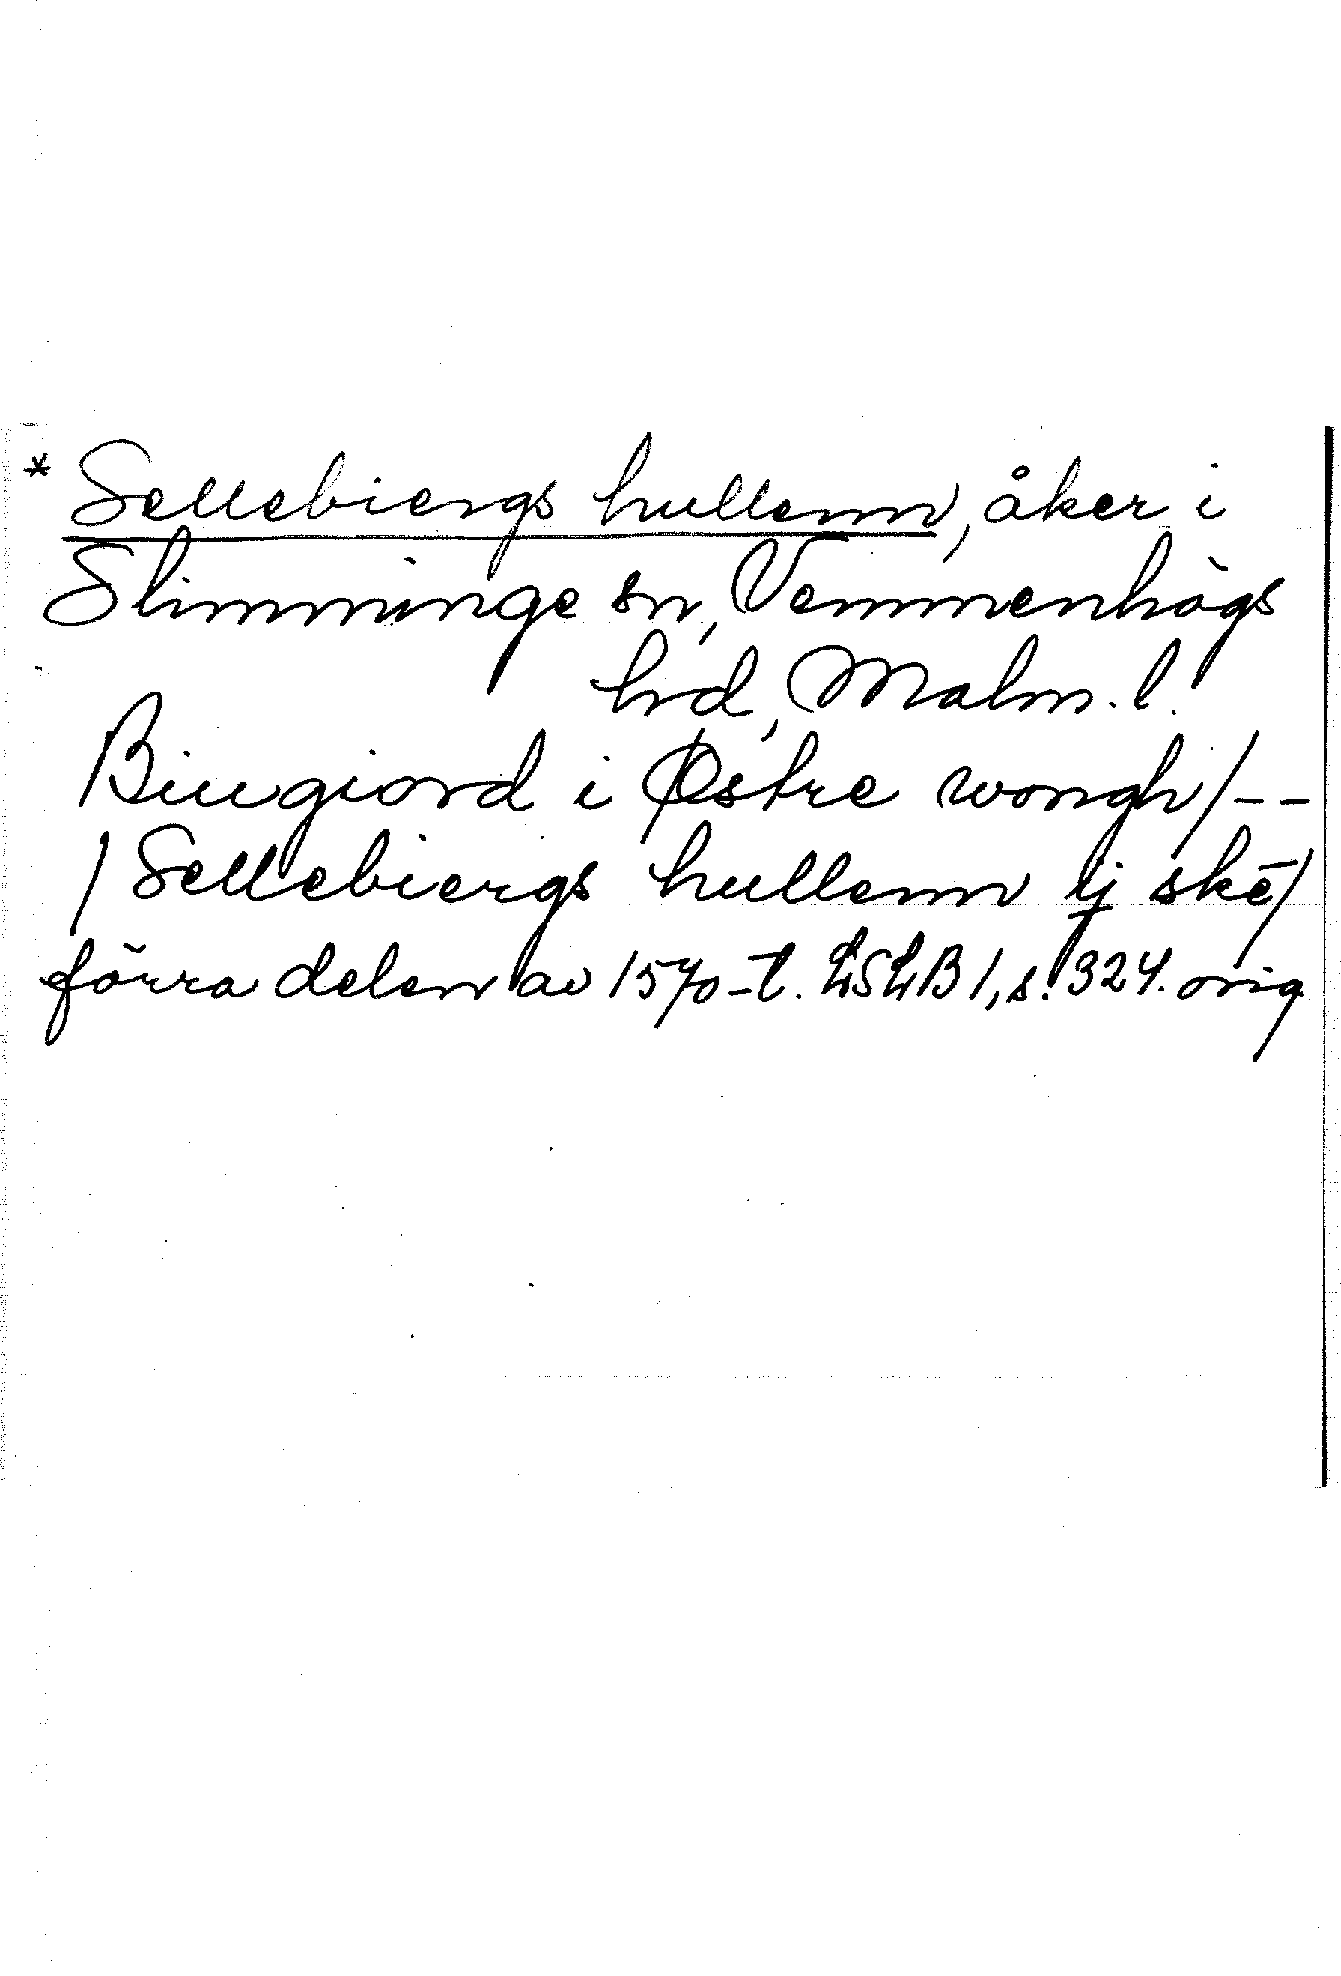 * Sellebiergs hullenn, åker i
Slimminge sn, Vemmenhögs
hrd, Malm. l.
Biugiord i Østre wongh/--
/Sellebiergs hullenn ij skē/
förra delen av 1570-t. LSLB 1, s. 324. orig